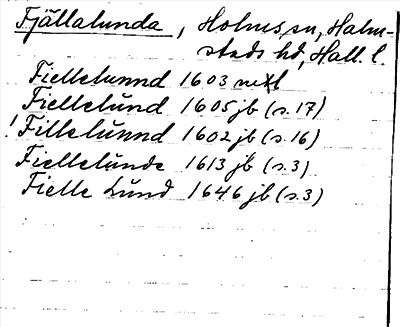 Fjällalunda, Holms sn, Halm-
stads hd, Hall. l.
Fiellelunnd 1603 mtl
Fiellelund 1605 jb (s. 17)
! Fillelŭnnd 1602 jb (s. 16)
Fiellelŭnde 1613 jb (s. 3)
Fielle Lŭnd 1646 jb (s. 3)